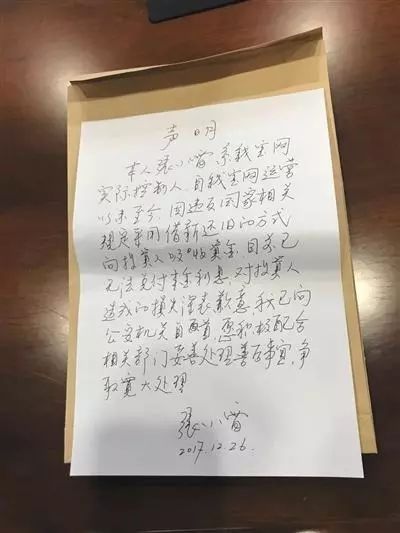 声明
本人張小雷系钱宝网
实际控制人,自钱宝网运营
以来至今,因违反国家相关
规定采用借新还旧的方式
向投資人吸收資金,目前已
无法兑付本金利息,对投資人
造成的损失深表歉意,我已向
公安机关自首,愿积极配合
相关部门妥善处理善后事宜,争
取寬大处理
張小雷
2017.12.26.